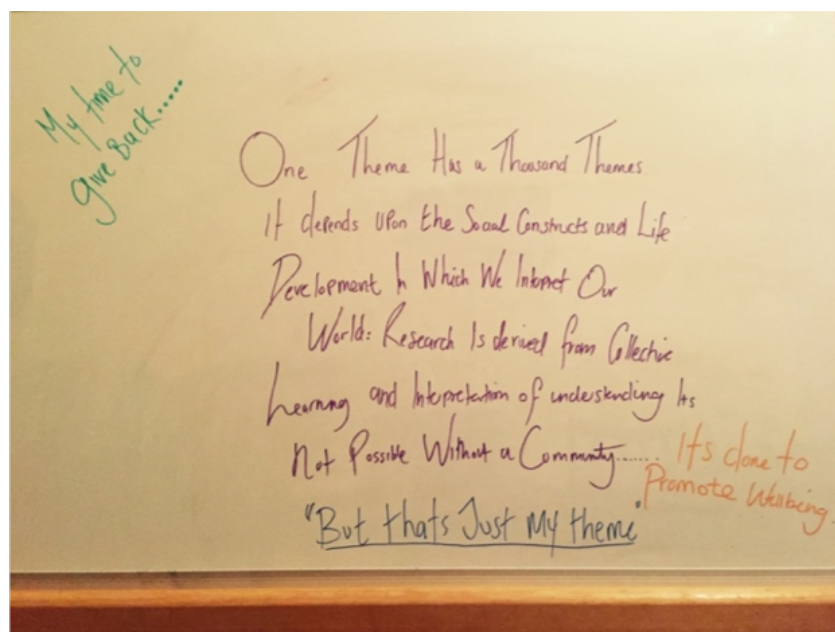 My time to
give Back.....
One Theme Has a Thousand Themes
It depends upon the Social Constructs and Life
Development In Which We Interpret Our
World: Research Is derived from Collective
Learning and Interpretation of understanding Its
not Possible Without a Community......
Its done to
Promote Wellbeing
"But thats Just My theme"